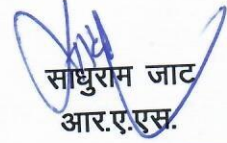 साधुराम जाट
आर.ए.एस.